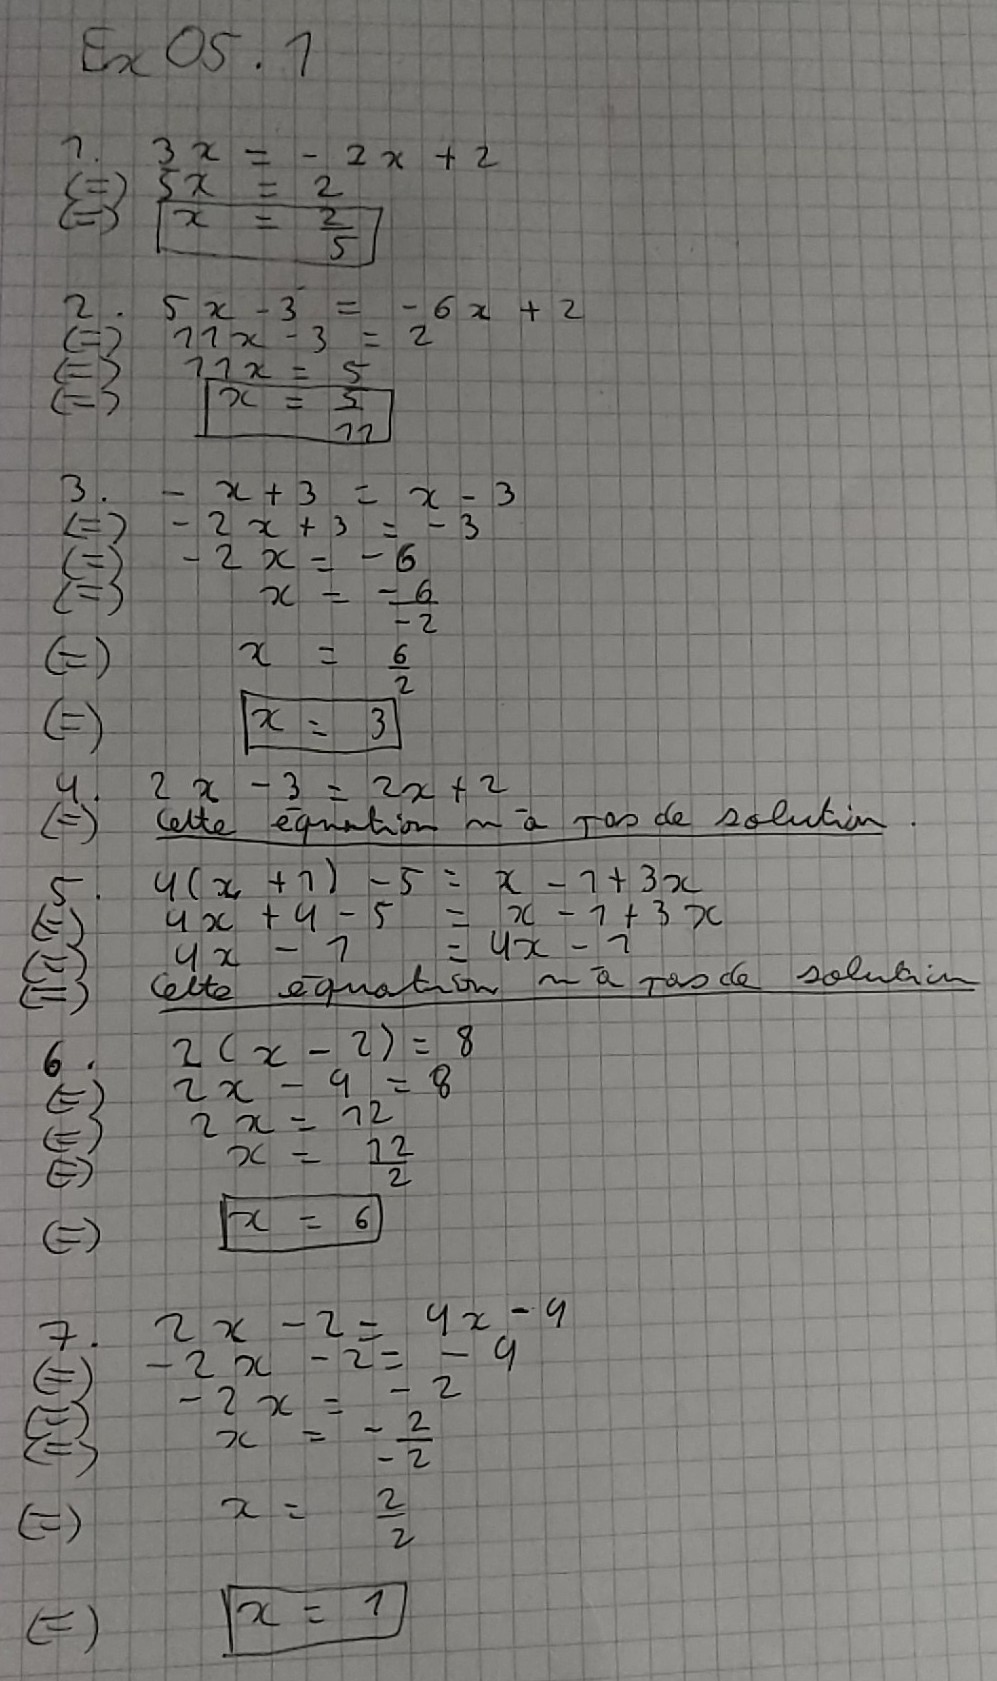 Ex 05.1
1. 3x = -2x + 2
(=) 5x = 2
(=) x = 2/5
2. 5x - 3 = -6x + 2
(=) 11x - 3 = 2
(=) 11x = 5
(=) x = 5/11
3. -x + 3 = x - 3
(=) -2x + 3 = -3
(=) -2x = -6
(=) x = -6/-2
(=) x = 6/2
(=) x = 3
4. 2x - 3 = 2x + 2
(=) Cette équation n'a pas de solution.
5. 4(x + 1) - 5 = x - 1 + 3x
(=) 4x + 4 - 5 = x - 1 + 3x
(=) 4x - 1 = 4x - 1
(=) Cette équation n'a pas de solution
6. 2(x - 2) = 8
(=) 2x - 4 = 8
(=) 2x = 12
(=) x = 12/2
(=) x = 6
7. 2x - 2 = 4x - 4
(=) -2x - 2 = -4
(=) -2x = -2
(=) x = -2/-2
(=) x = 2/2
(=) x = 1